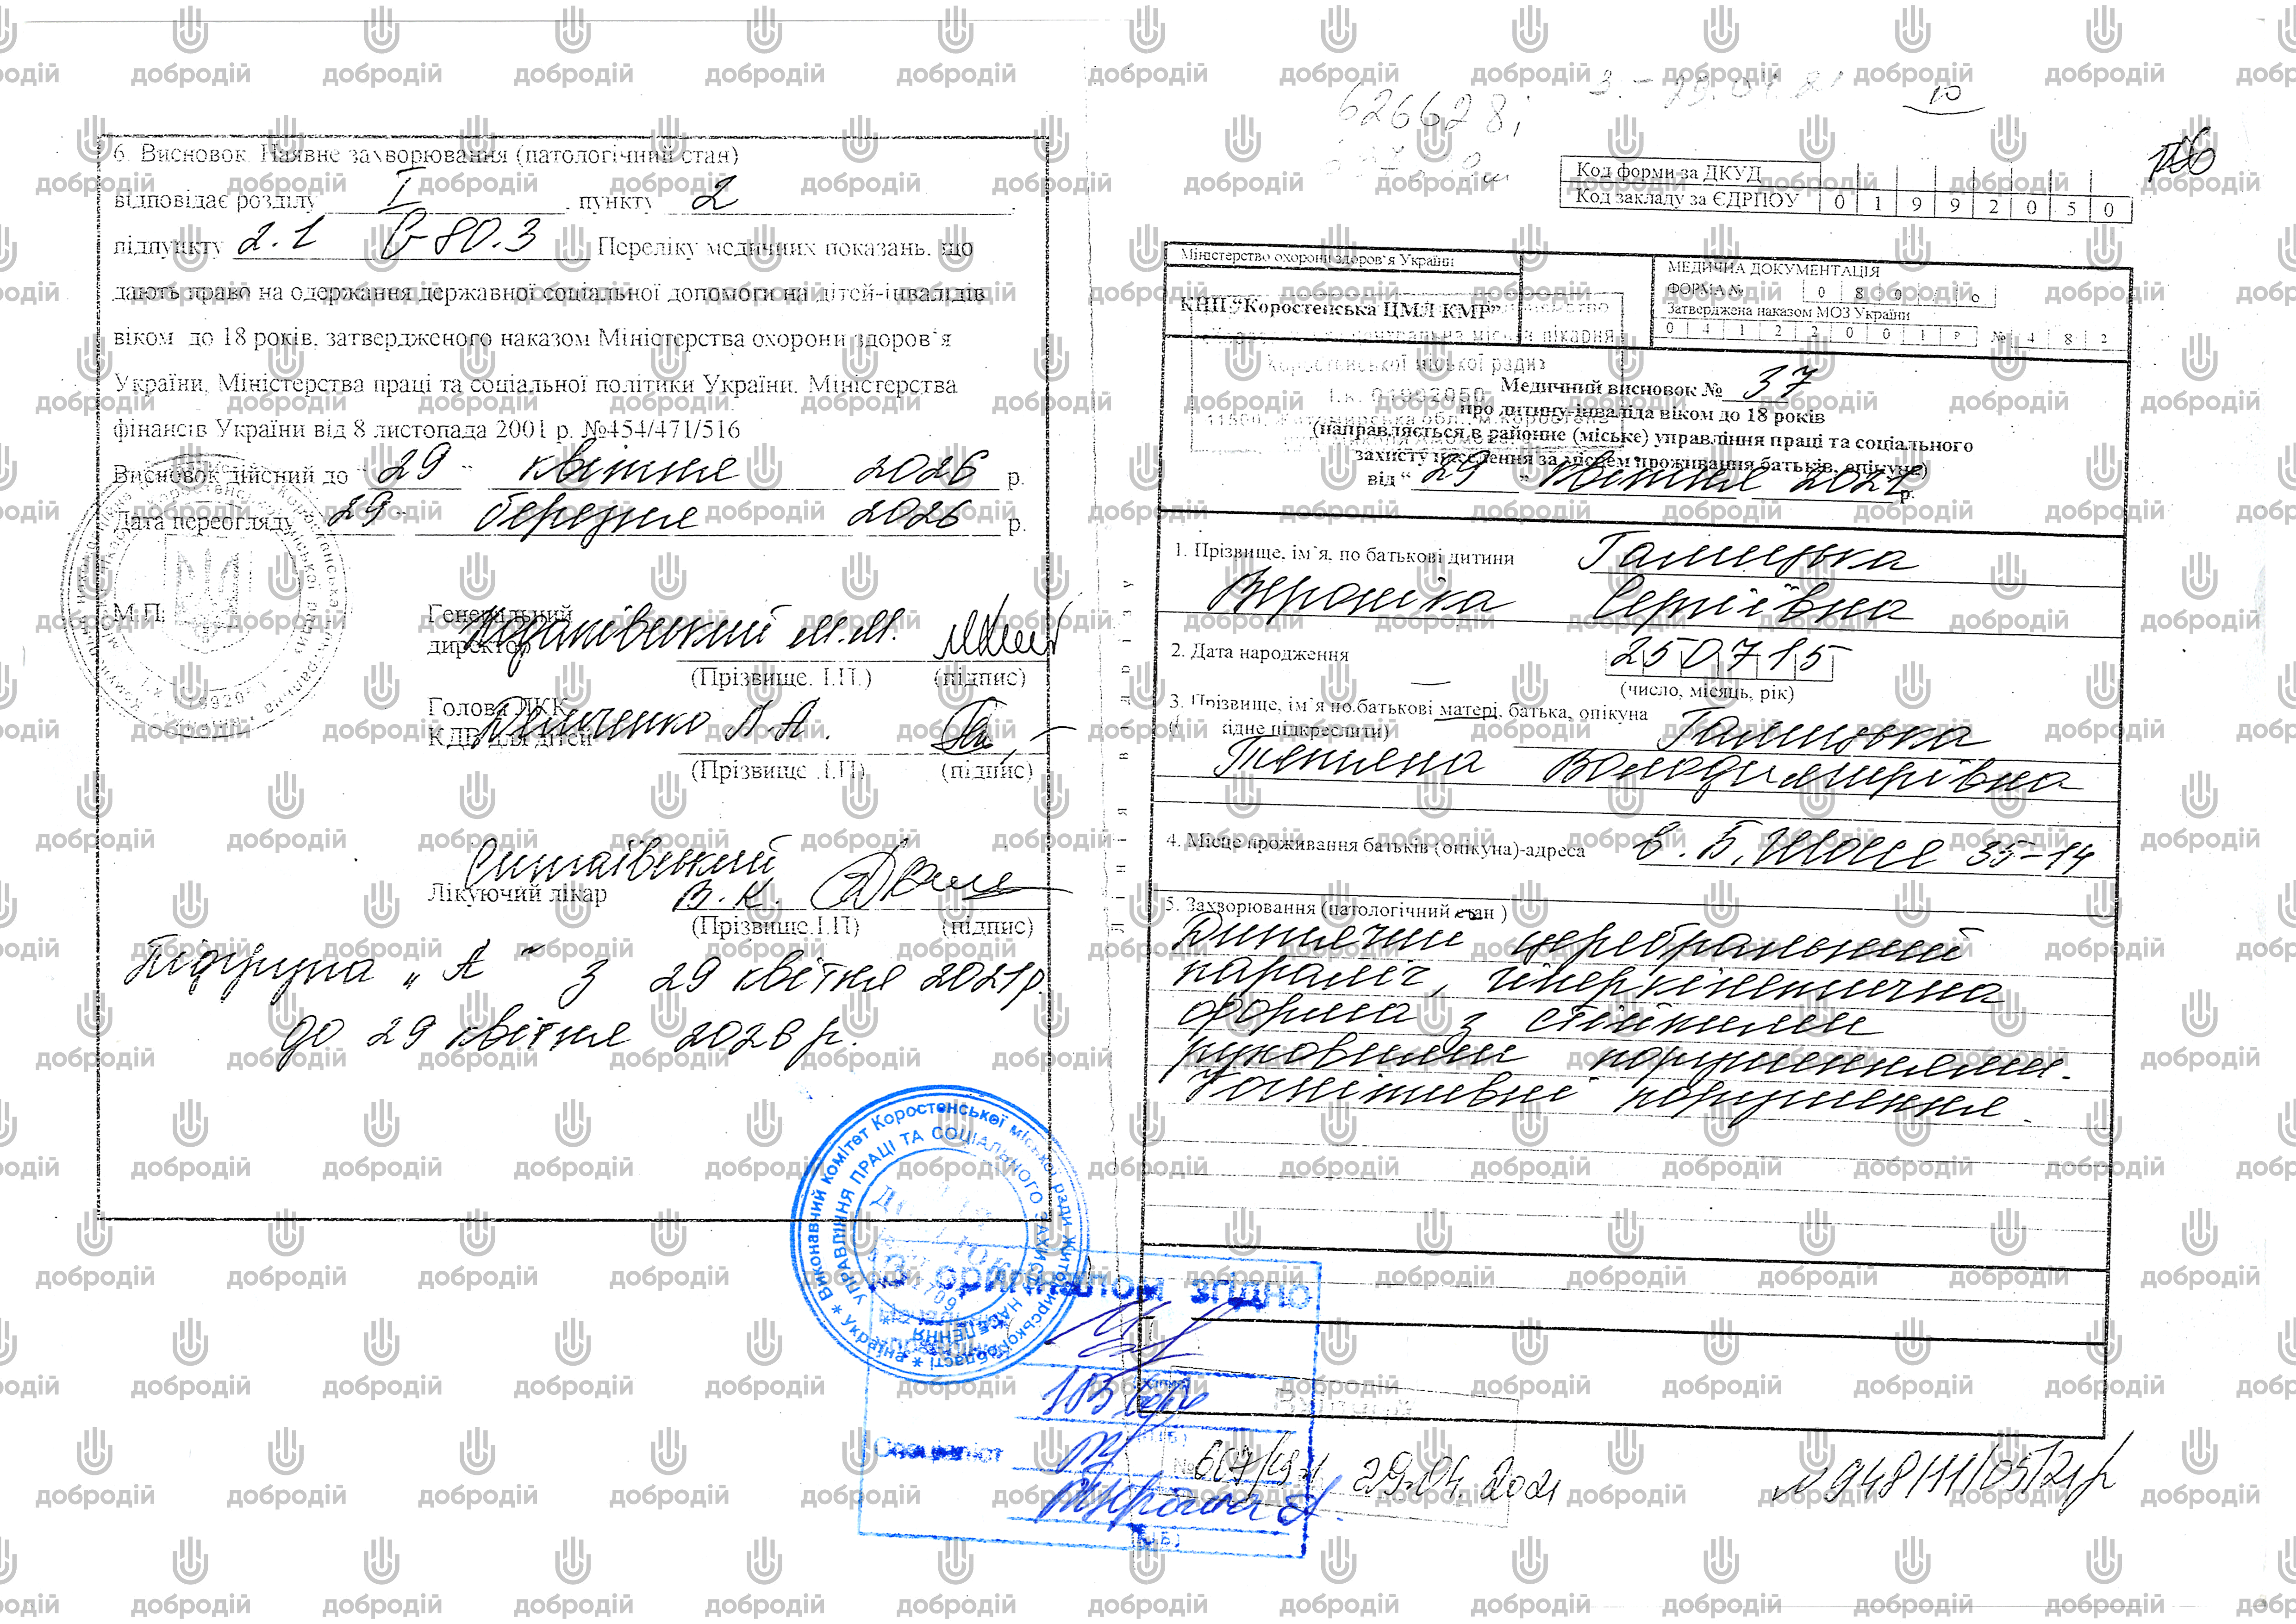 6. Висновок. Наявне захворювання (патологічний стан)
відповідає розділу I . пункту 2
підпункту 2.1 G 80.3 Переліку медичних показань, що
дають право на одержання державної соціальної допомоги на дітей-інвалідів
віком до 18 років, затвердженого наказом Міністерства охорони здоров`я
України, Міністерства праці та соціальної політики України, Міністерства
фінансів України від 8 листопада 2001 р. №454/471/516
Висновок дійсний до “ 29 “ квітня 2026 р.
Дата переогляду “ 29 “ березня 2026 р.
М.П.
Генеральний
директор М.М.
(Прізвище. І.П.) (підпис)
Голова ЛКК
КДП для дітей Л.А.
(Прізвище .І.П) (підпис)
Лікуючий лікар В.К.
(Прізвище.І.П) (підпис)
Підгрупа „А“ з 29 квітня 2021р.
до 29 квітня 2026 р.
10
Код форми за ДКУД
Код закладу за ЄДРПОУ 0 1 9 9 2 0 5 0
Міністерство охорони здоров`я України
КНП “Коростенська ЦМЛ КМР”
МЕДИЧНА ДОКУМЕНТАЦІЯ
ФОРМА № 0 8 0 о
Затверджена наказом МОЗ України
0 4 1 2 2 0 0 1 Р № 4 8 2
Коростенської міської ради
І.к. 01992050
Медичний висновок № 37
про дитину-інваліда віком до 18 років
(направляється в районне (міське) управління праці та соціального
захисту населення за місцем проживання батьків, опікуна)
від “ 29 “ квітня 2021 р.
1. Прізвище, ім`я, по батькові дитини Галицька
Вероніка Сергіївна
2. Дата народження 250715
(число, місяць, рік)
3. Прізвище, ім`я по.батькові матері, батька, опікуна
підкреслити) Галицька
Тетяна Володимирівна
4. Місце проживання батьків (опікуна)-адреса в. Б. 35-14
5. Захворювання (патологічний стан )
Дитячий церебральний
параліч, гіперкінетична
форма з стійкими
руховими порушеннями.
Когнітивні порушення.
Лінія відрізу
* Україна * Виконавчий комітет Коростенської міської ради Житомирської області
УПРАВЛІННЯ ПРАЦІ ТА СОЦІАЛЬНОГО ЗАХИСТУ НАСЕЛЕННЯ
З оригіналом згідно
Спеціаліст
(П.І.Б.)
29.04.2021
№948/11/05/21р
добродій